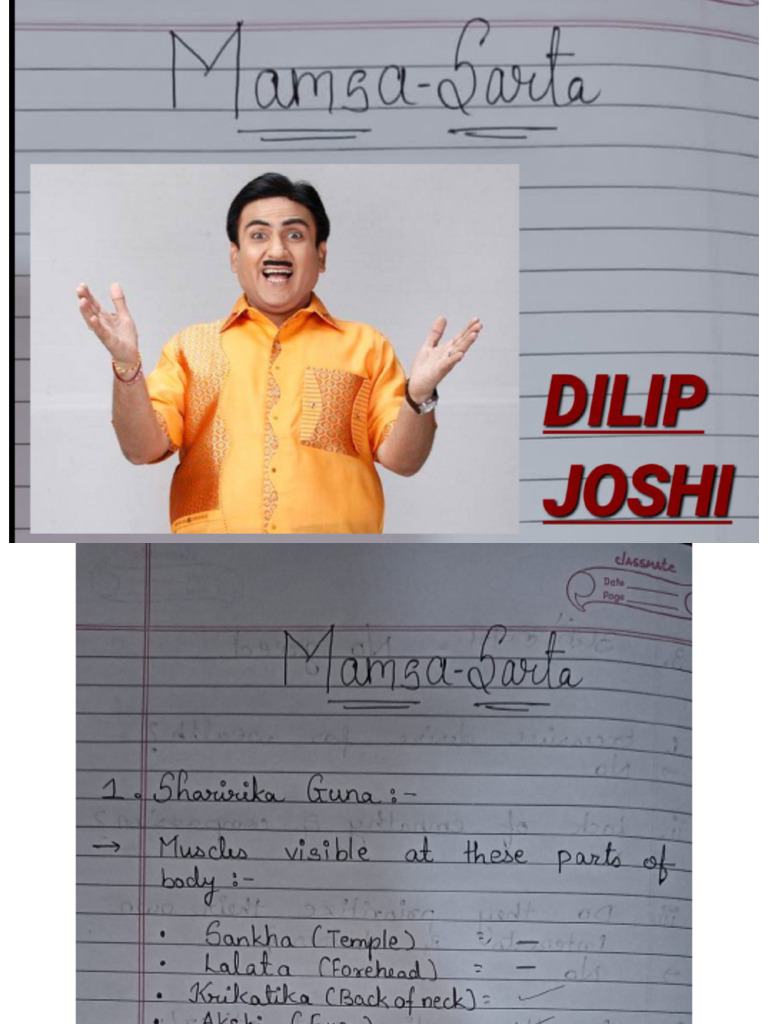 Mamsa-Sarta
DILIP
JOSHI
classmate
Date
Page
Mamsa-Sarta
1. Sharirika Guna :-
→ Muscles visible at these parts of
body :-
• Sankha (Temple) = -
• Lalata (Forehead) = -
• Krikatika (Back of neck) = ✓